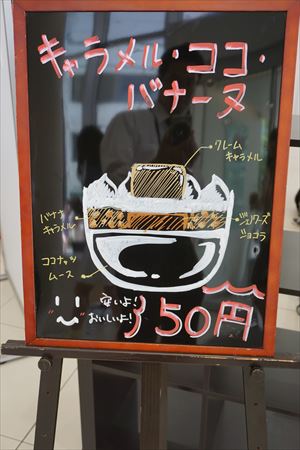 キャラメル・ココ・
バナーヌ
クレーム
キャラメル
バナナ
キャラメル
ショコラ
ココナッツ
ムース
安いよ!
おいしいよ!
150円